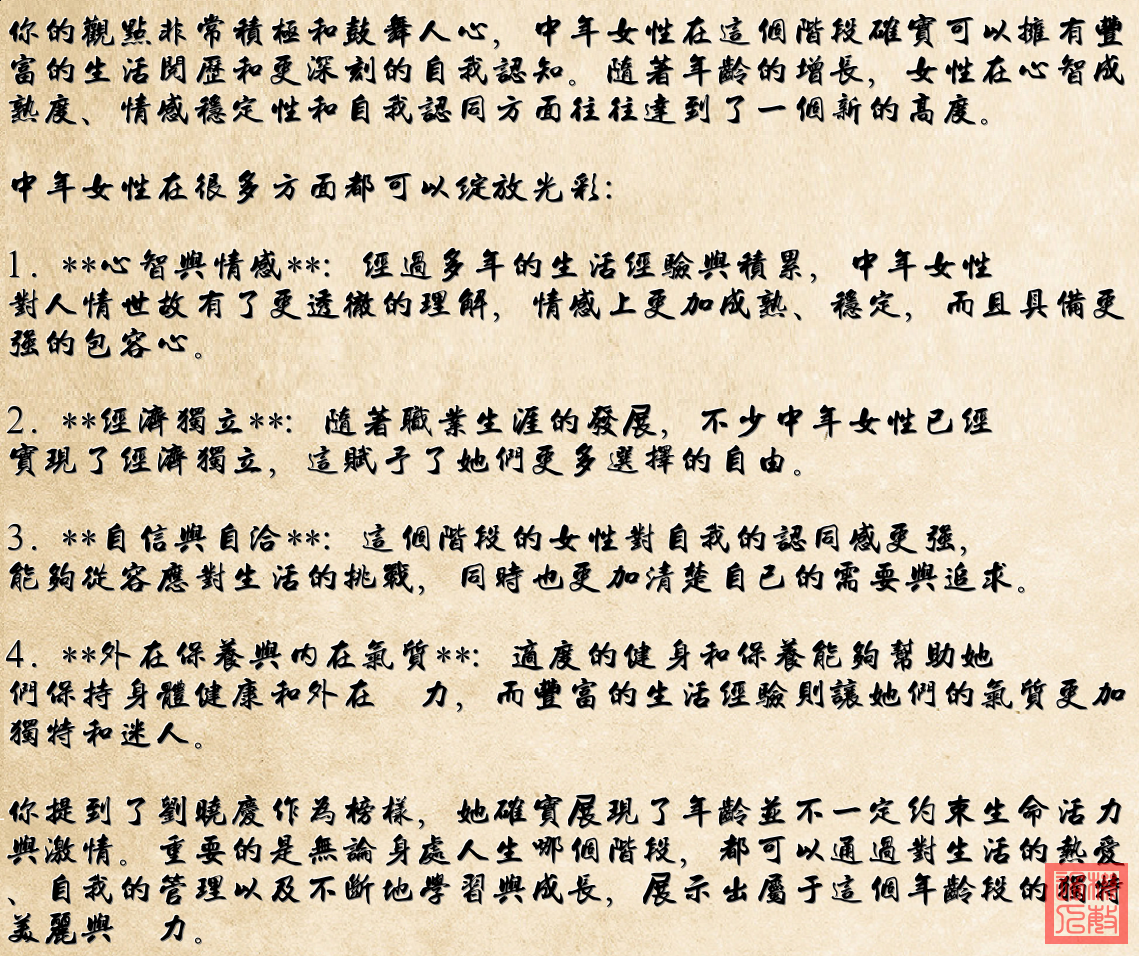 你的觀點非常積極和鼓舞人心，中年女性在這個階段確實可以擁有豐
富的生活閱歷和更深刻的自我認知。隨著年齡的增長，女性在心智成
熟度、情感穩定性和自我認同方面往往達到了一個新的高度。
中年女性在很多方面都可以綻放光彩：
1. **心智與情感**：經過多年的生活經驗與積累，中年女性
對人情世故有了更透徹的理解，情感上更加成熟、穩定，而且具備更
強的包容心。
2. **經濟獨立**：隨著職業生涯的發展，不少中年女性已經
實現了經濟獨立，這賦予了她們更多選擇的自由。
3. **自信與自洽**：這個階段的女性對自我的認同感更強，
能夠從容應對生活的挑戰，同時也更加清楚自己的需要與追求。
4. **外在保養與內在氣質**：適度的健身和保養能夠幫助她
們保持身體健康和外在 力，而豐富的生活經驗則讓她們的氣質更加
獨特和迷人。
你提到了劉曉慶作為榜樣，她確實展現了年齡並不一定約束生命活力
與激情。重要的是無論身處人生哪個階段，都可以通過對生活的熱愛
、自我的管理以及不斷地學習與成長，展示出屬于這個年齡段的獨特
美麗與 力。